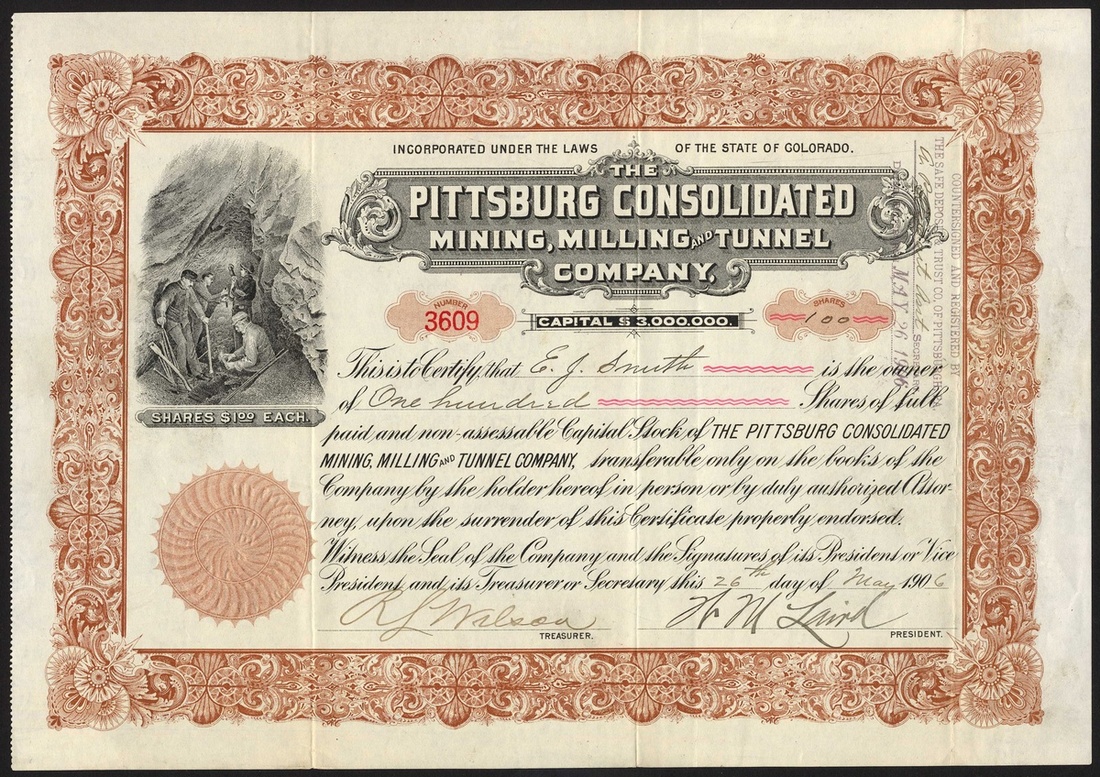 INCORPORATED UNDER THE LAWS OF THE STATE OF COLORADO.
THE
PITTSBURG CONSOLIDATED
MINING, MILLING AND TUNNEL
COMPANY,
NUMBER
3609
CAPITAL $3,000,000.
SHARES
100
SHARES $1.00 EACH.
This is to Certify, that E. J. Smith is the owner
of One hundred Shares of full
paid and non-assessable Capital Stock of THE PITTSBURG CONSOLIDATED
MINING, MILLING AND TUNNEL COMPANY, transferable only on the books of the
Company by the holder hereof in person or by duly authorized Attor-
ney, upon the surrender of this Certificate properly endorsed.
Witness the Seal of the Company and the Signatures of its President or Vice
President and its Treasurer or Secretary this 26th day of May 1906
R S Wilson
TREASURER.
W M Laird
PRESIDENT.
COUNTERSIGNED AND REGISTERED BY
THE SAFE DEPOSIT & TRUST CO. OF PITTSBURGH
SECRETARY
MAY 26 1906